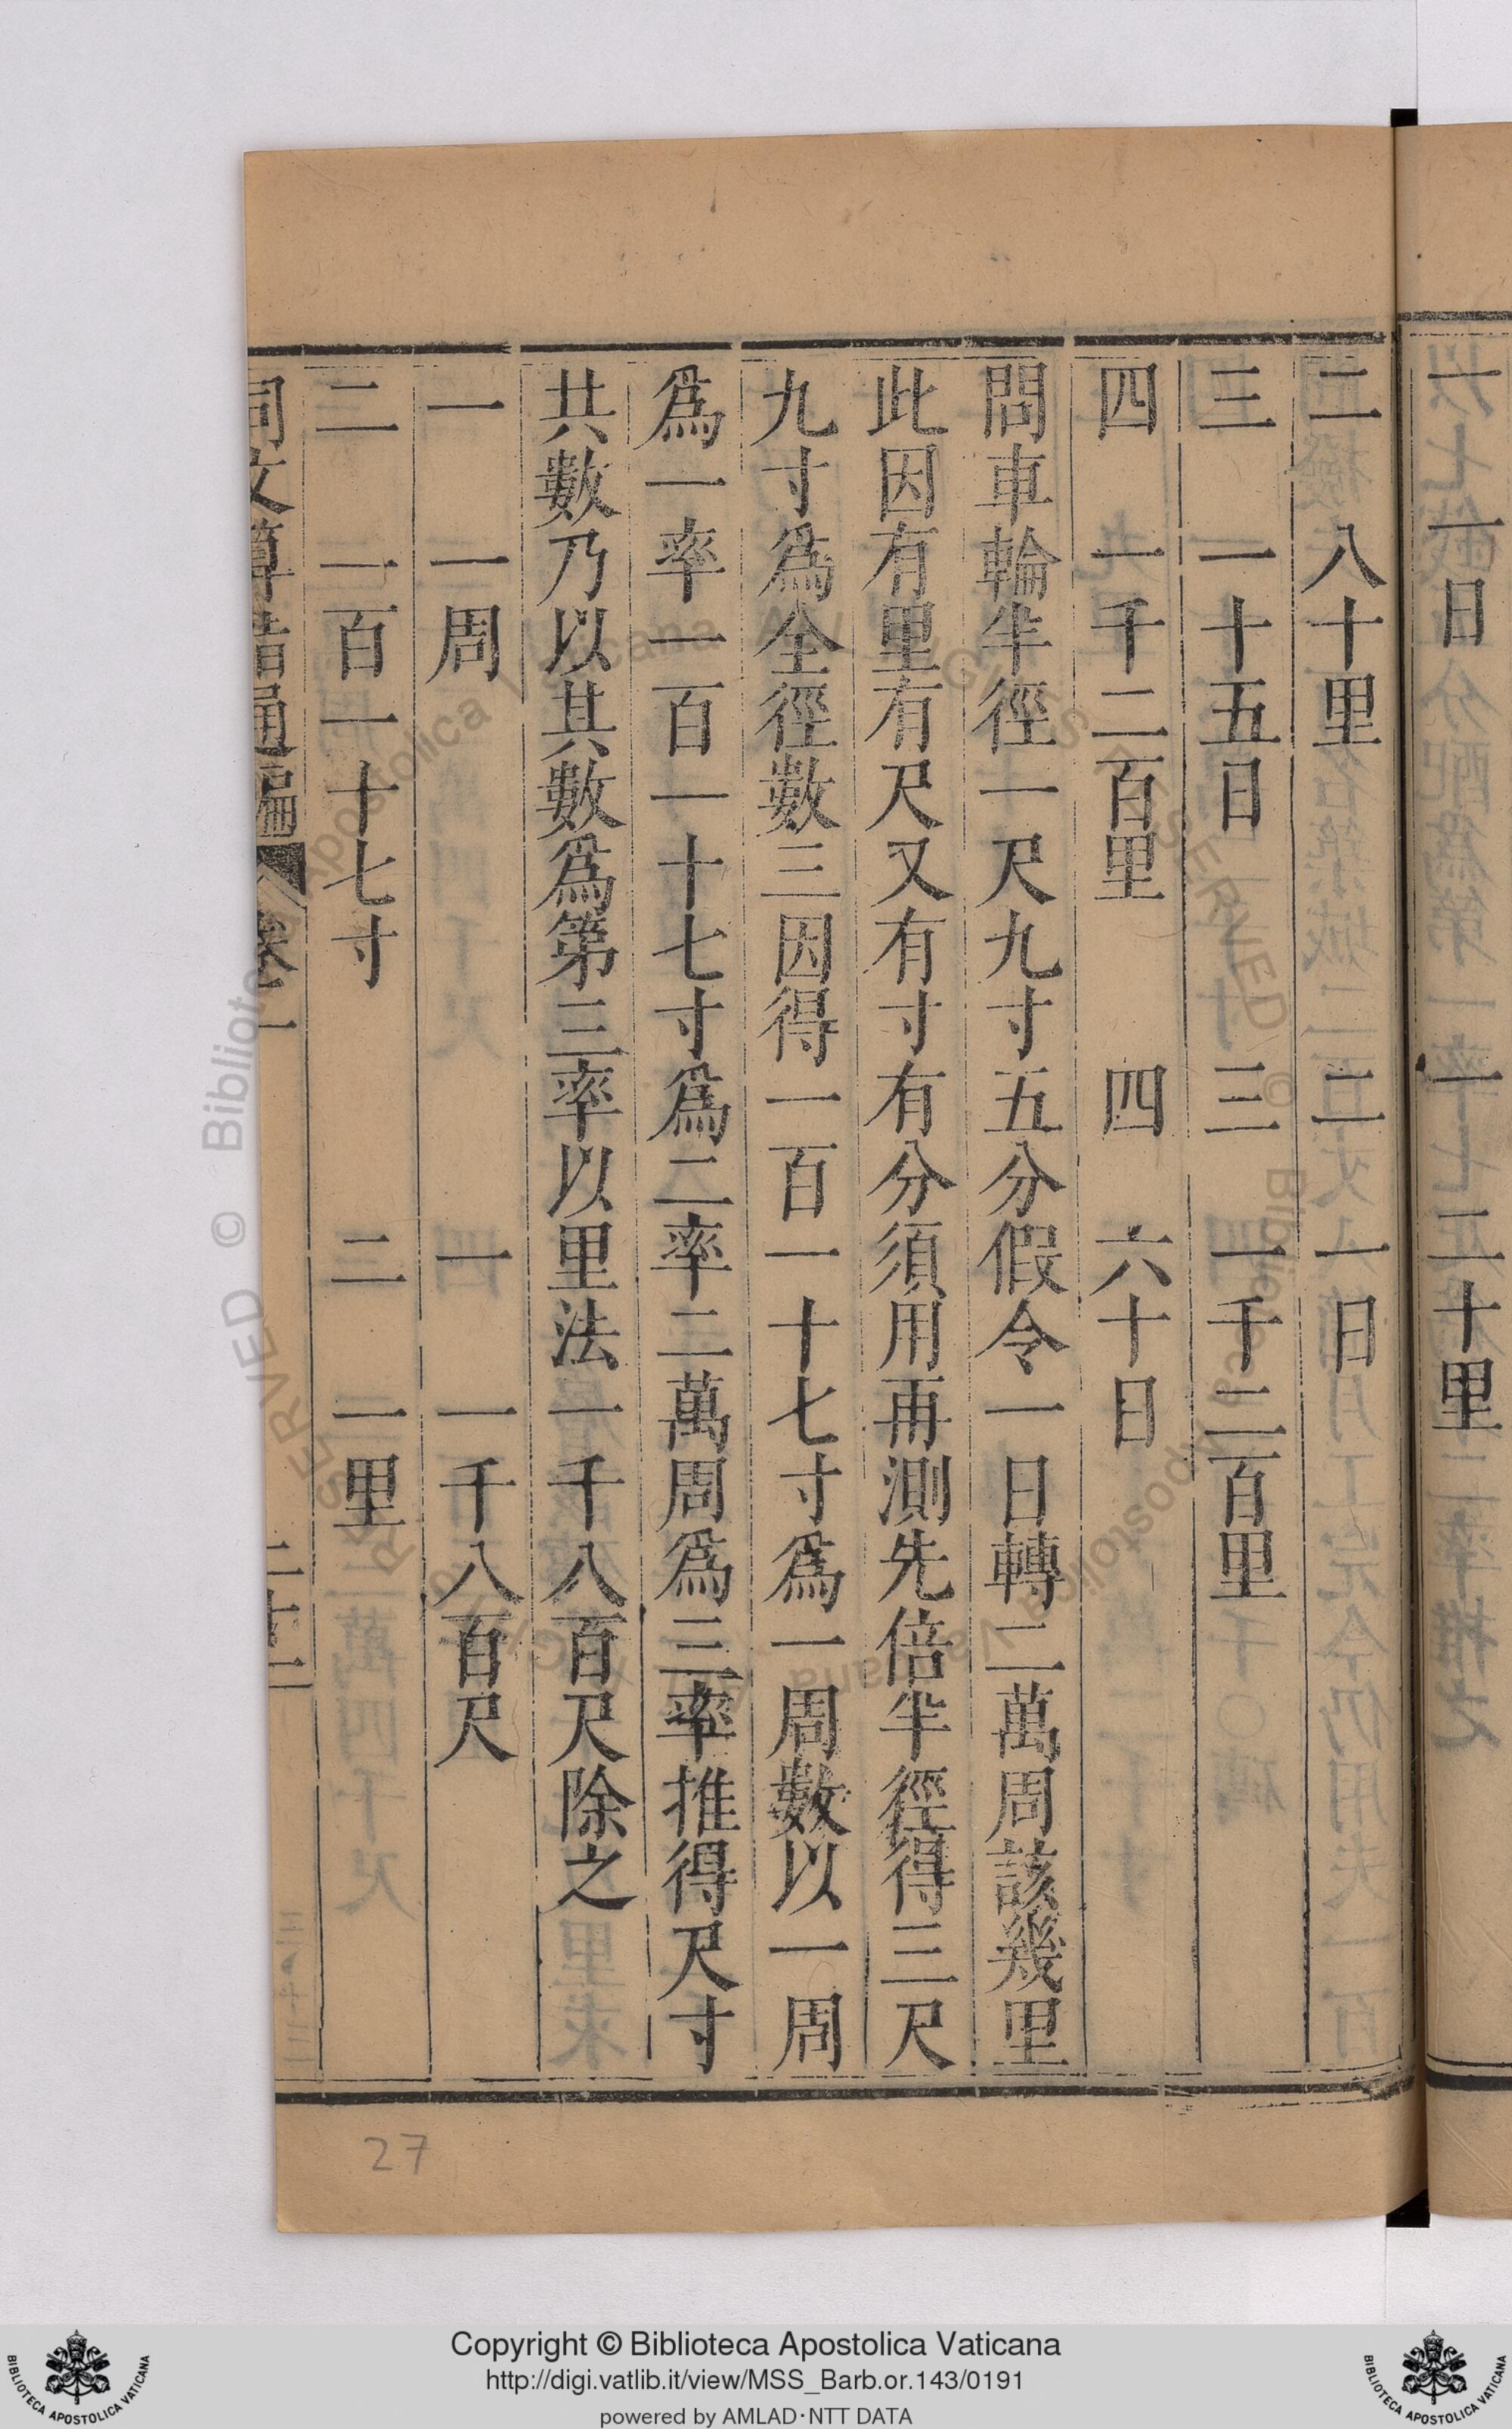 一　一日　一　二十里
二　八十里　二　一日
三　一十五日　三　一千二百里
四　一千二百里　四　六十日
問車輪半徑一尺九寸五分假令一日轉二萬周該幾里
此因有里有尺又有寸有分須用再測先倍半徑得三尺
九寸爲全徑數三因得一百一十七寸爲一周數以一周
爲一率一百一十七寸爲二率二萬周爲三率推得尺寸
共數乃以其數爲第三率以里法一千八百尺除之
一　一周　一　一千八百尺
二　一百一十七寸　二　一里
同文算指通編　卷一　二十二
27
© Biblioteca Apostolica Vaticana
ALL RIGHTS RESERVED
Copyright © Biblioteca Apostolica Vaticana
http://digi.vatlib.it/view/MSS_Barb.or.143/0191
powered by AMLAD·NTT DATA
BIBLIOTECA APOSTOLICA VATICANA
BIBLIOTECA APOSTOLICA VATICANA